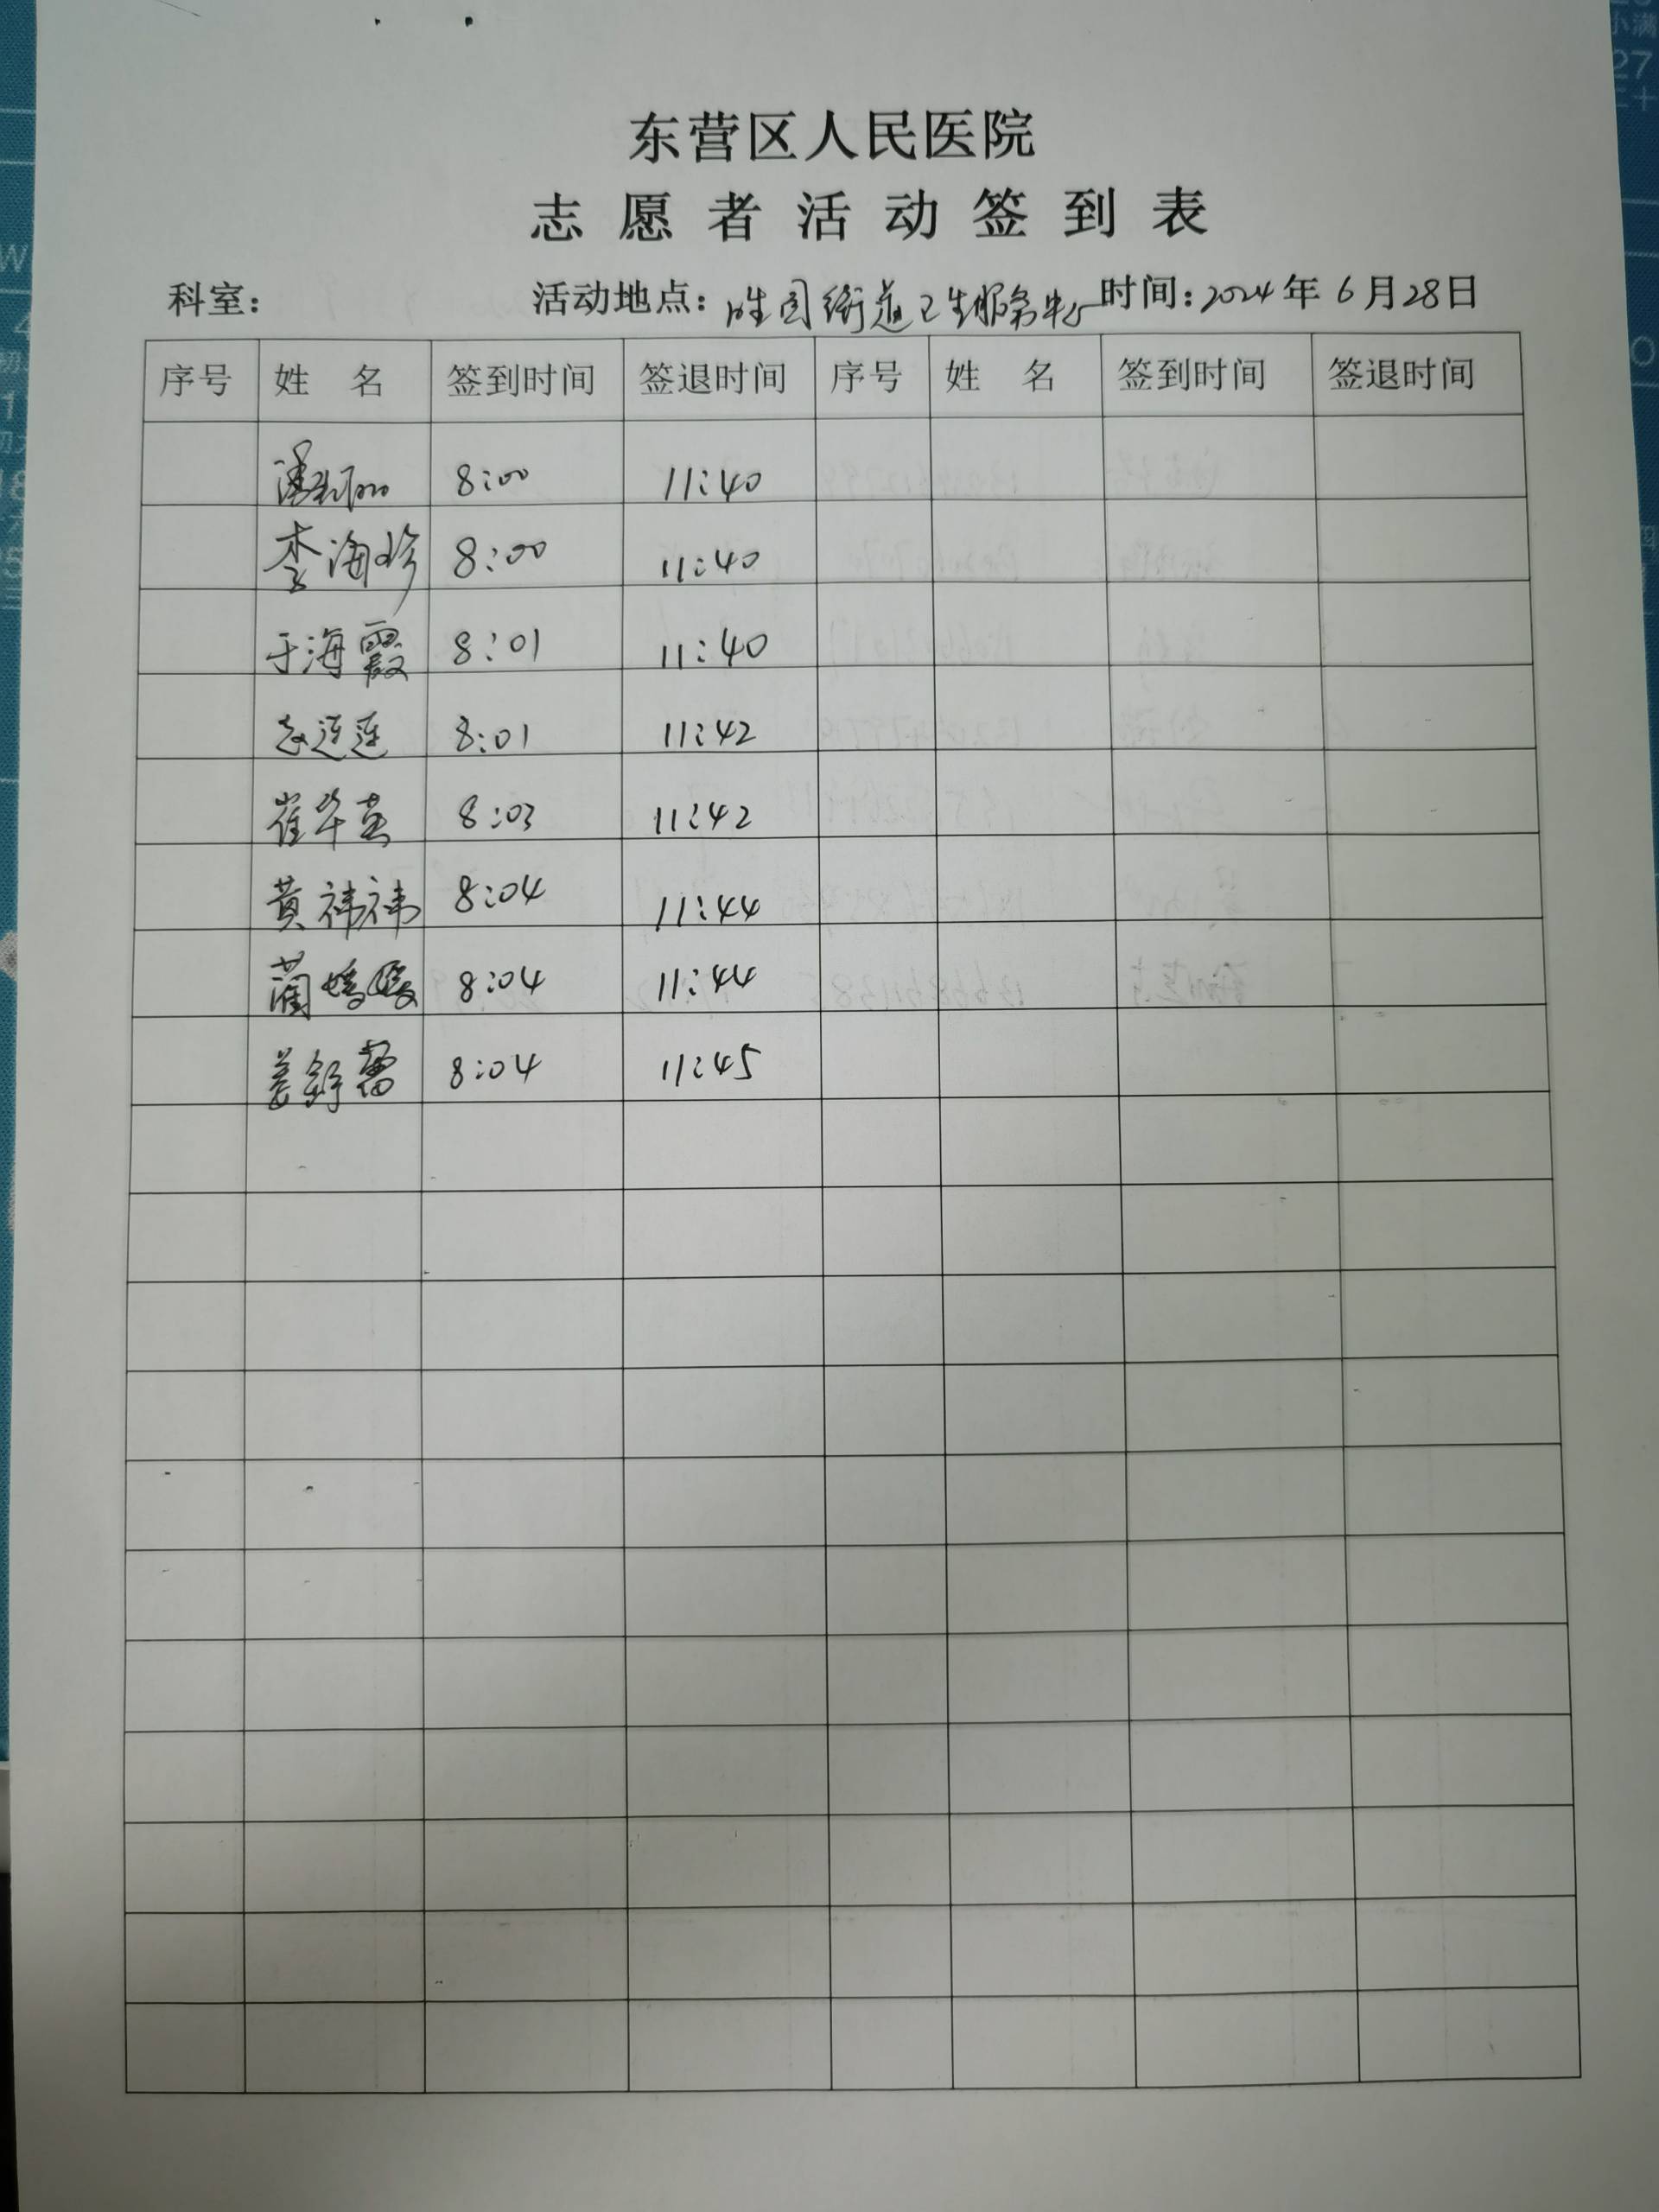 东营区人民医院
志愿者活动签到表
科室： 活动地点：胜园街道卫生服务中心 时间：2024年6月28日
序号 姓名 签到时间 签退时间 序号 姓名 签到时间 签退时间
8:00 11:40
李海珍 8:00 11:40
于海霞 8:01 11:40
连连 8:01 11:42
崔华英 8:03 11:42
黄祎祎 8:04 11:44
蔺媛媛 8:04 11:44
姜舒蕾 8:04 11:45